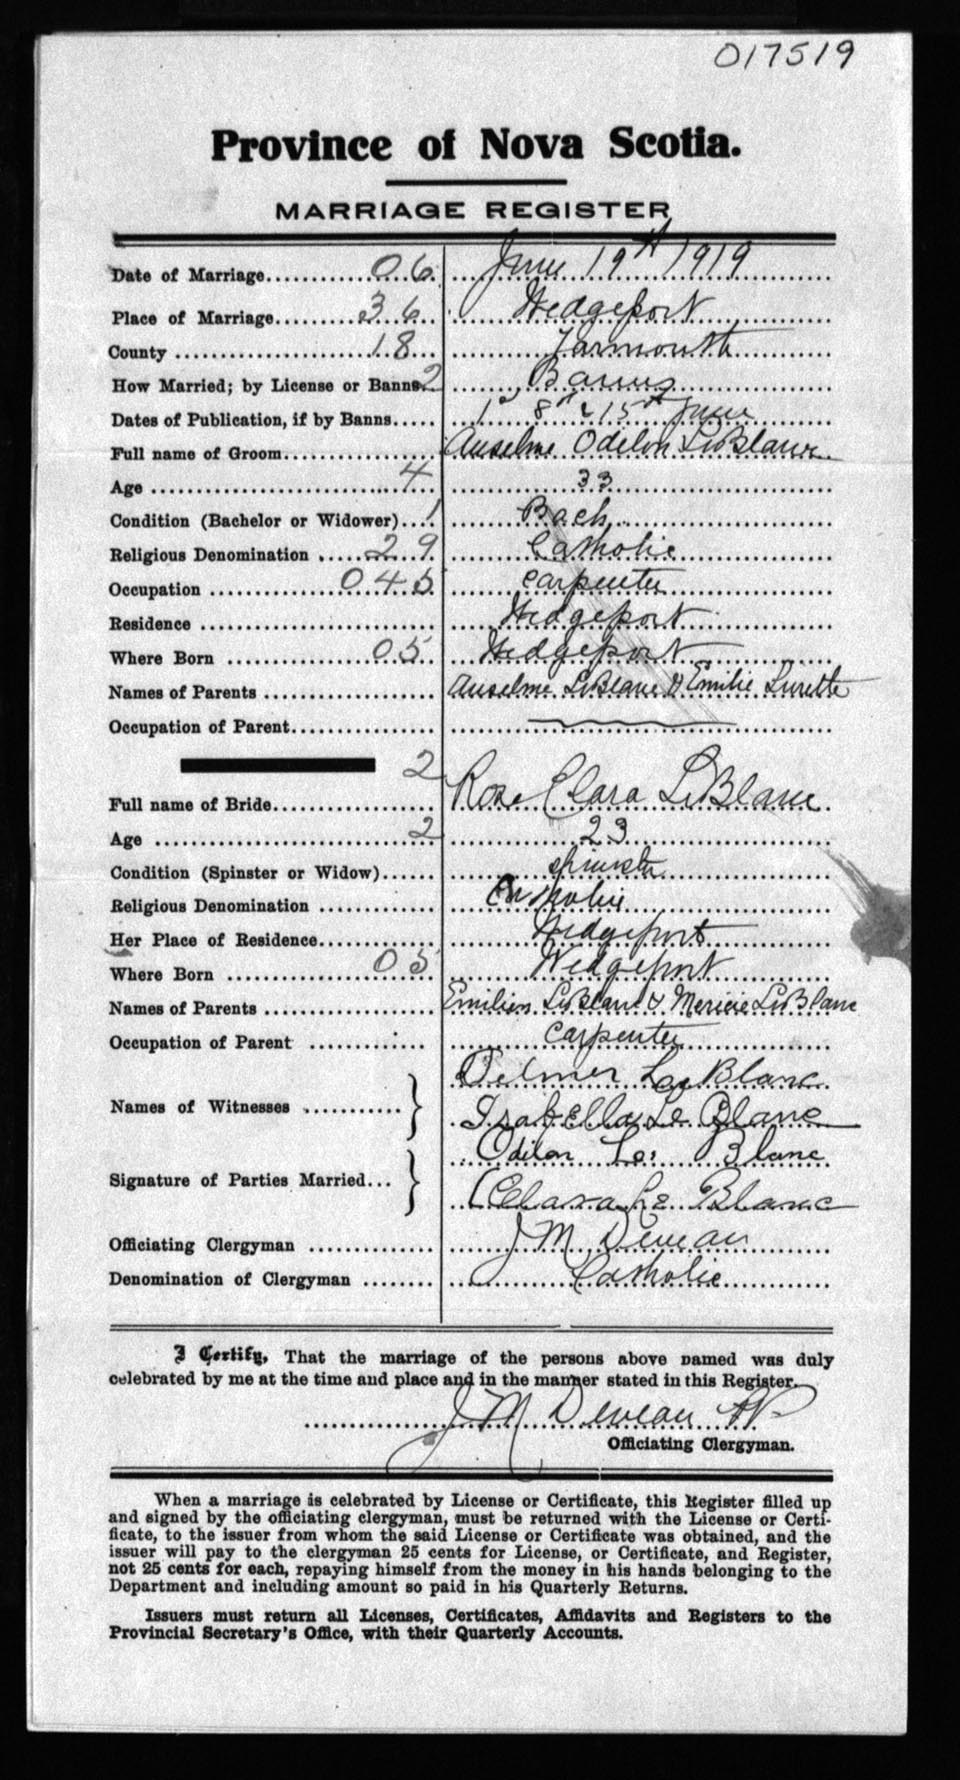 017519
Province of Nova Scotia.
MARRIAGE REGISTER
Date of Marriage 06 June 19th 1919
Place of Marriage 36 Wedgeport
County 18 Yarmouth
How Married; by License or Banns 2 Banns
Dates of Publication, if by Banns 1st 8th & 15th June
Full name of Groom Anselme Odilon LeBlanc
Age 4 33
Condition (Bachelor or Widower) 1 Bach
Religious Denomination 29 Catholic
Occupation 045 carpenter
Residence Wedgeport
Where Born 05 Wedgeport
Names of Parents Anselme LeBlanc & Emilie Surette
Occupation of Parent
2
Full name of Bride Rose Clara LeBlanc
Age 2 23
Condition (Spinster or Widow) spinster
Religious Denomination Catholic
Her Place of Residence Wedgeport
Where Born 05 Wedgeport
Names of Parents Emilien LeBlanc & LeBlanc
Occupation of Parent carpenter
Names of Witnesses Delmer Le Blanc
Isabella Le Blanc
Signature of Parties Married Odilon Le Blanc
Clara Le Blanc
Officiating Clergyman J M Deveau
Denomination of Clergyman Catholic
I Certify, That the marriage of the persons above named was duly
celebrated by me at the time and place and in the manner stated in this Register.
J M Deveau PP
Officiating Clergyman.
When a marriage is celebrated by License or Certificate, this Register filled up
and signed by the officiating clergyman, must be returned with the License or Certi-
ficate, to the issuer from whom the said License or Certificate was obtained, and the
issuer will pay to the clergyman 25 cents for License, or Certificate, and Register,
not 25 cents for each, repaying himself from the money in his hands belonging to the
Department and including amount so paid in his Quarterly Returns.
Issuers must return all Licenses, Certificates, Affidavits and Registers to the
Provincial Secretary's Office, with their Quarterly Accounts.